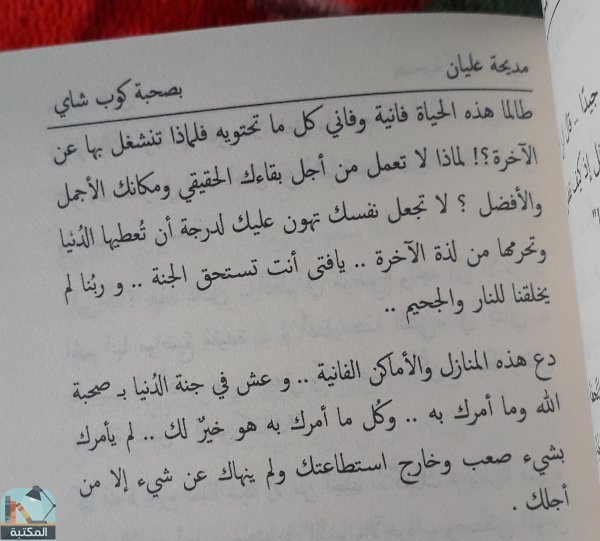 مديحة عليان
بصحبة كوب شاي
طالما هذه الحياة فانية وفاني كل ما تحتويه فلماذا تنشغل بها عن
الآخرة؟! لماذا لا تعمل من أجل بقاءك الحقيقي ومكانك الأجمل
والأفضل ؟ لا تجعل نفسك تهون عليك لدرجة أن تُعطيها الدُنيا
وتحرمها من لذة الآخرة .. يافتى أنت تستحق الجنة .. و ربُنا لم
يخلقنا للنار والجحيم ..
دع هذه المنازل والأماكن الفانية .. و عش في جنة الدُنيا بـ صحبة
الله وما أمرك به .. وكُل ما أمرك به هو خيرٌ لك .. لم يأمرك
بشيء صعب وخارج استطاعتك ولم ينهاك عن شيء إلا من
أجلك .
المكتبة